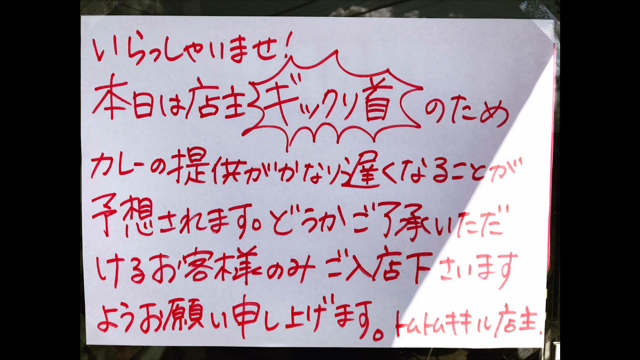 いらっしゃいませ!
本日は店主ギックリ首のため
カレーの提供がかなり遅くなることが
予想されます。どうかご了承いただ
けるお客様のみご入店下さいます
ようお願い申し上げます。トムトムキキル店主.